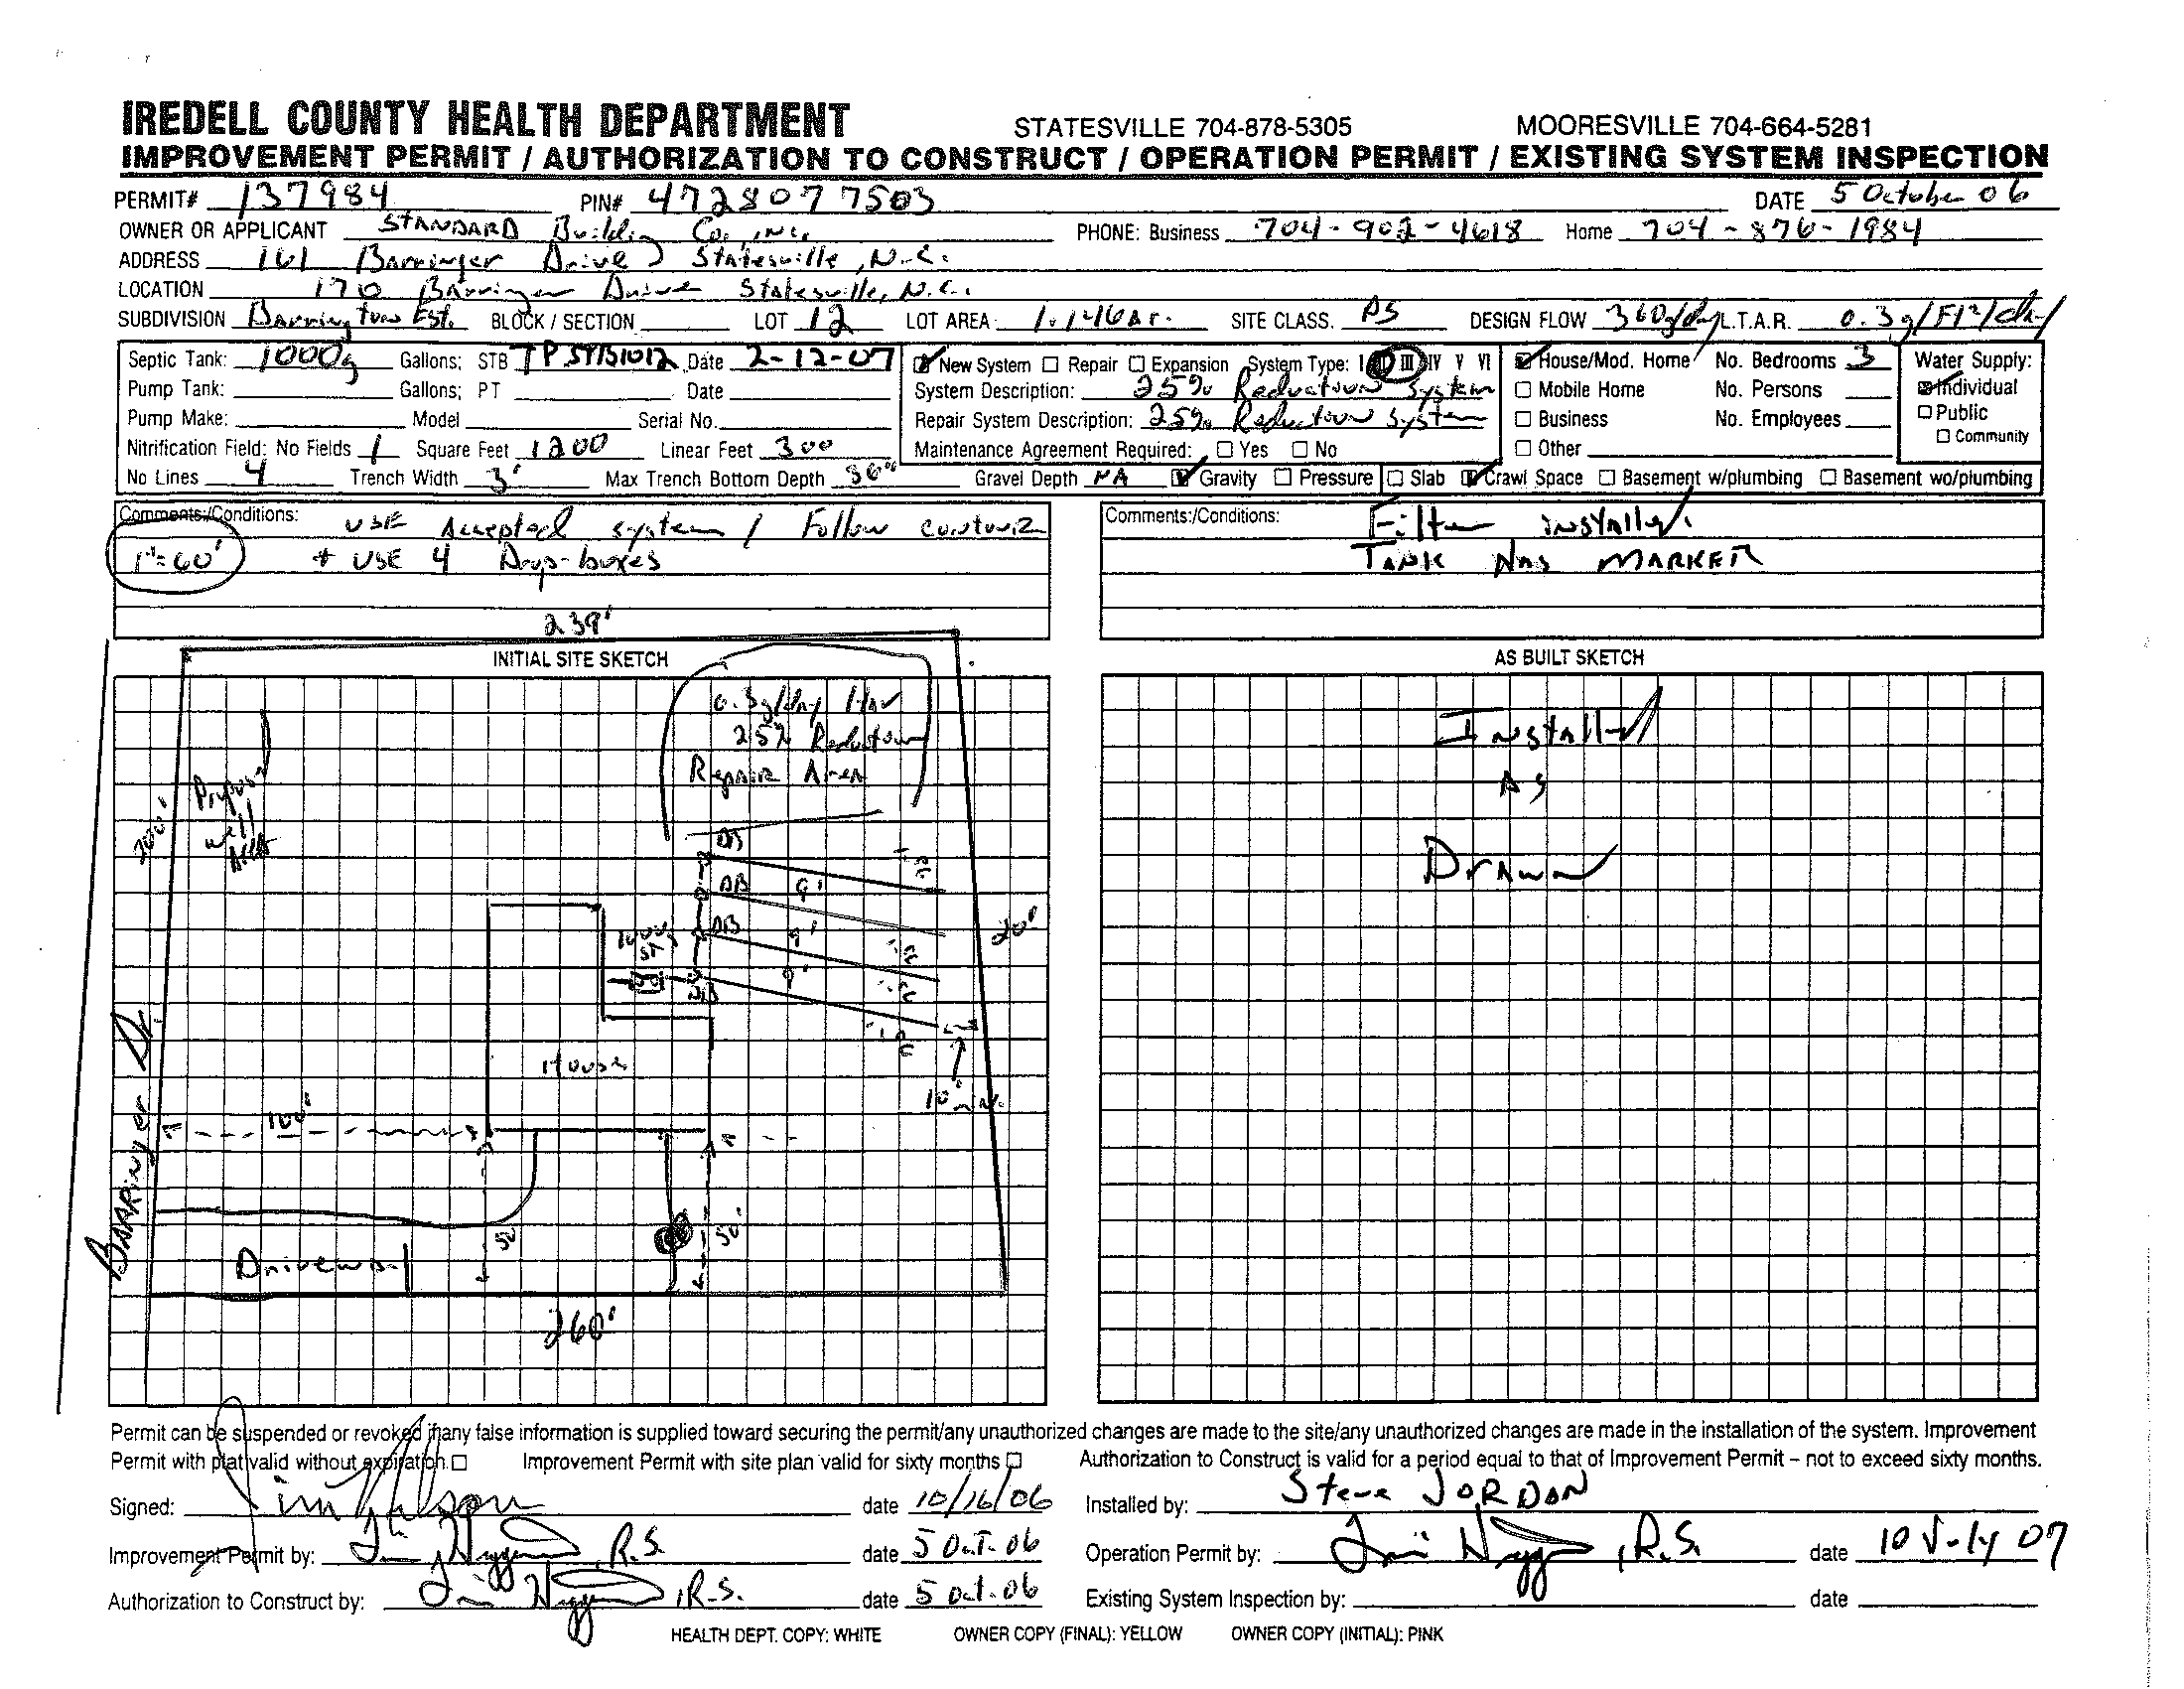 IREDELL COUNTY HEALTH DEPARTMENT STATESVILLE 704-878-5305 MOORESVILLE 704-664-5281
IMPROVEMENT PERMIT / AUTHORIZATION TO CONSTRUCT / OPERATION PERMIT / EXISTING SYSTEM INSPECTION
PERMIT# 137984 PIN# 4728077503 DATE 5 October 06
OWNER OR APPLICANT STANDARD Building Co., INC. PHONE: Business 704-902-4618 Home 704-876-1984
ADDRESS 161 Barringer Drive Statesville, N.C.
LOCATION 170 Barringer Drive Statesville, N.C.
SUBDIVISION Barrington Est. BLOCK / SECTION LOT 12 LOT AREA 1.146 Ac. SITE CLASS. PS DESIGN FLOW 360g/day L.T.A.R. 0.3g/Ft²/day
Septic Tank: 1000g Gallons; STB TP STB1012 Date 2-12-07 New System Repair Expansion System Type: I II III IV V VI House/Mod. Home No. Bedrooms 3 Water Supply:
Pump Tank: Gallons; PT Date System Description: 25% Reduction System Mobile Home No. Persons Individual
Pump Make: Model Serial No. Repair System Description: 25% Reduction System Business No. Employees Public
Nitrification Field: No Fields 1 Square Feet 1200 Linear Feet 300 Maintenance Agreement Required: Yes No Other Community
No Lines 4 Trench Width 3' Max Trench Bottom Depth 36" Gravel Depth NA Gravity Pressure Slab Crawl Space Basement w/plumbing Basement wo/plumbing
Comments:/Conditions: USE Accepted system / Follow contour
1"=60' * USE 4 Drop-boxes
Comments:/Conditions: Filter installed.
TANK has MARKER
239'
INITIAL SITE SKETCH
0.3g/day
25% Reduction
Repair Area
Proposed
well
Area
200'
DB
DB 9'
DB 9'
1000g
ST
9'
DB
20'
House
10' min.
100'
Barringer Dr.
50'
50'
Driveway
260'
AS BUILT SKETCH
Installed
As
Drawn
Permit can be suspended or revoked if any false information is supplied toward securing the permit/any unauthorized changes are made to the site/any unauthorized changes are made in the installation of the system. Improvement
Permit with plat valid without expiration Improvement Permit with site plan valid for sixty months Authorization to Construct is valid for a period equal to that of Improvement Permit – not to exceed sixty months.
Signed: date 10/16/06 Installed by: Steve JORDON
Improvement Permit by: R.S. date 5 Oct. 06 Operation Permit by: R.S. date 10 July 07
Authorization to Construct by: R.S. date 5 Oct. 06 Existing System Inspection by: date
HEALTH DEPT. COPY: WHITE OWNER COPY (FINAL): YELLOW OWNER COPY (INITIAL): PINK